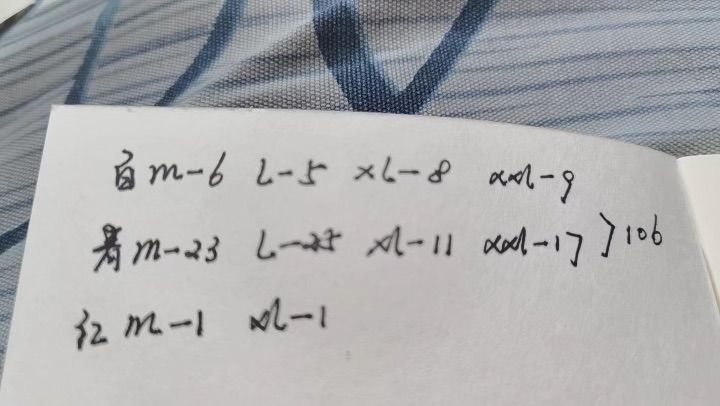 白 m-6 L-5 XL-8 XXL-9
m-23 L-25 XL-11 XXL-17 } 106
红 m-1 XL-1